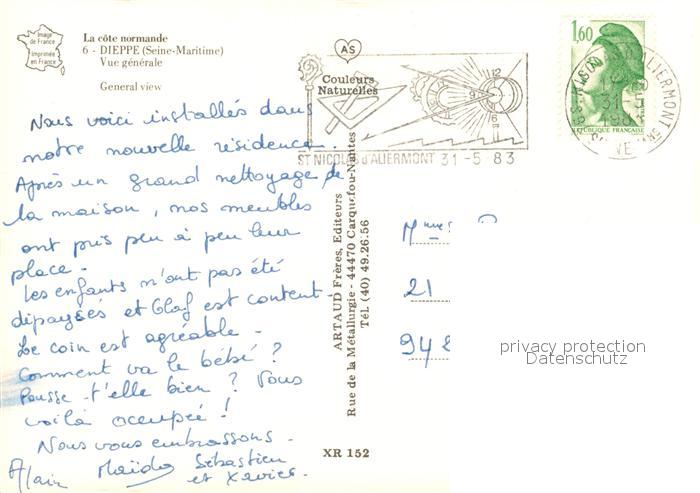 Image
de France
Imprimée
en France
La côte normande
6 - DIEPPE (Seine-Maritime)
Vue générale
General view
Nous voici installés dans
notre nouvelle résidence.
Après un grand nettoyage de
la maison, nos meubles
ont pris peu à peu leur
place.
Les enfants n'ont pas été
dépaysés et Olaf est content.
Le coin est agréable.
Comment va le bébé ?
Pousse-t'elle bien ? Vous
voilà occupée !
Nous vous embrassons.
Alain Maïda Sébastien
et Xavier.
AS
Couleurs
Naturelles
ARTAUD Frères, Editeurs
Rue de la Métallurgie - 44470 Carquefou-Nantes
Tél. (40) 49.26.56
XR 152
12
9
6
ST NICOLAS d'ALIERMONT 31-5 83
1,60
REPUBLIQUE FRANÇAISE
21
948
privacy protection
Datenschutz